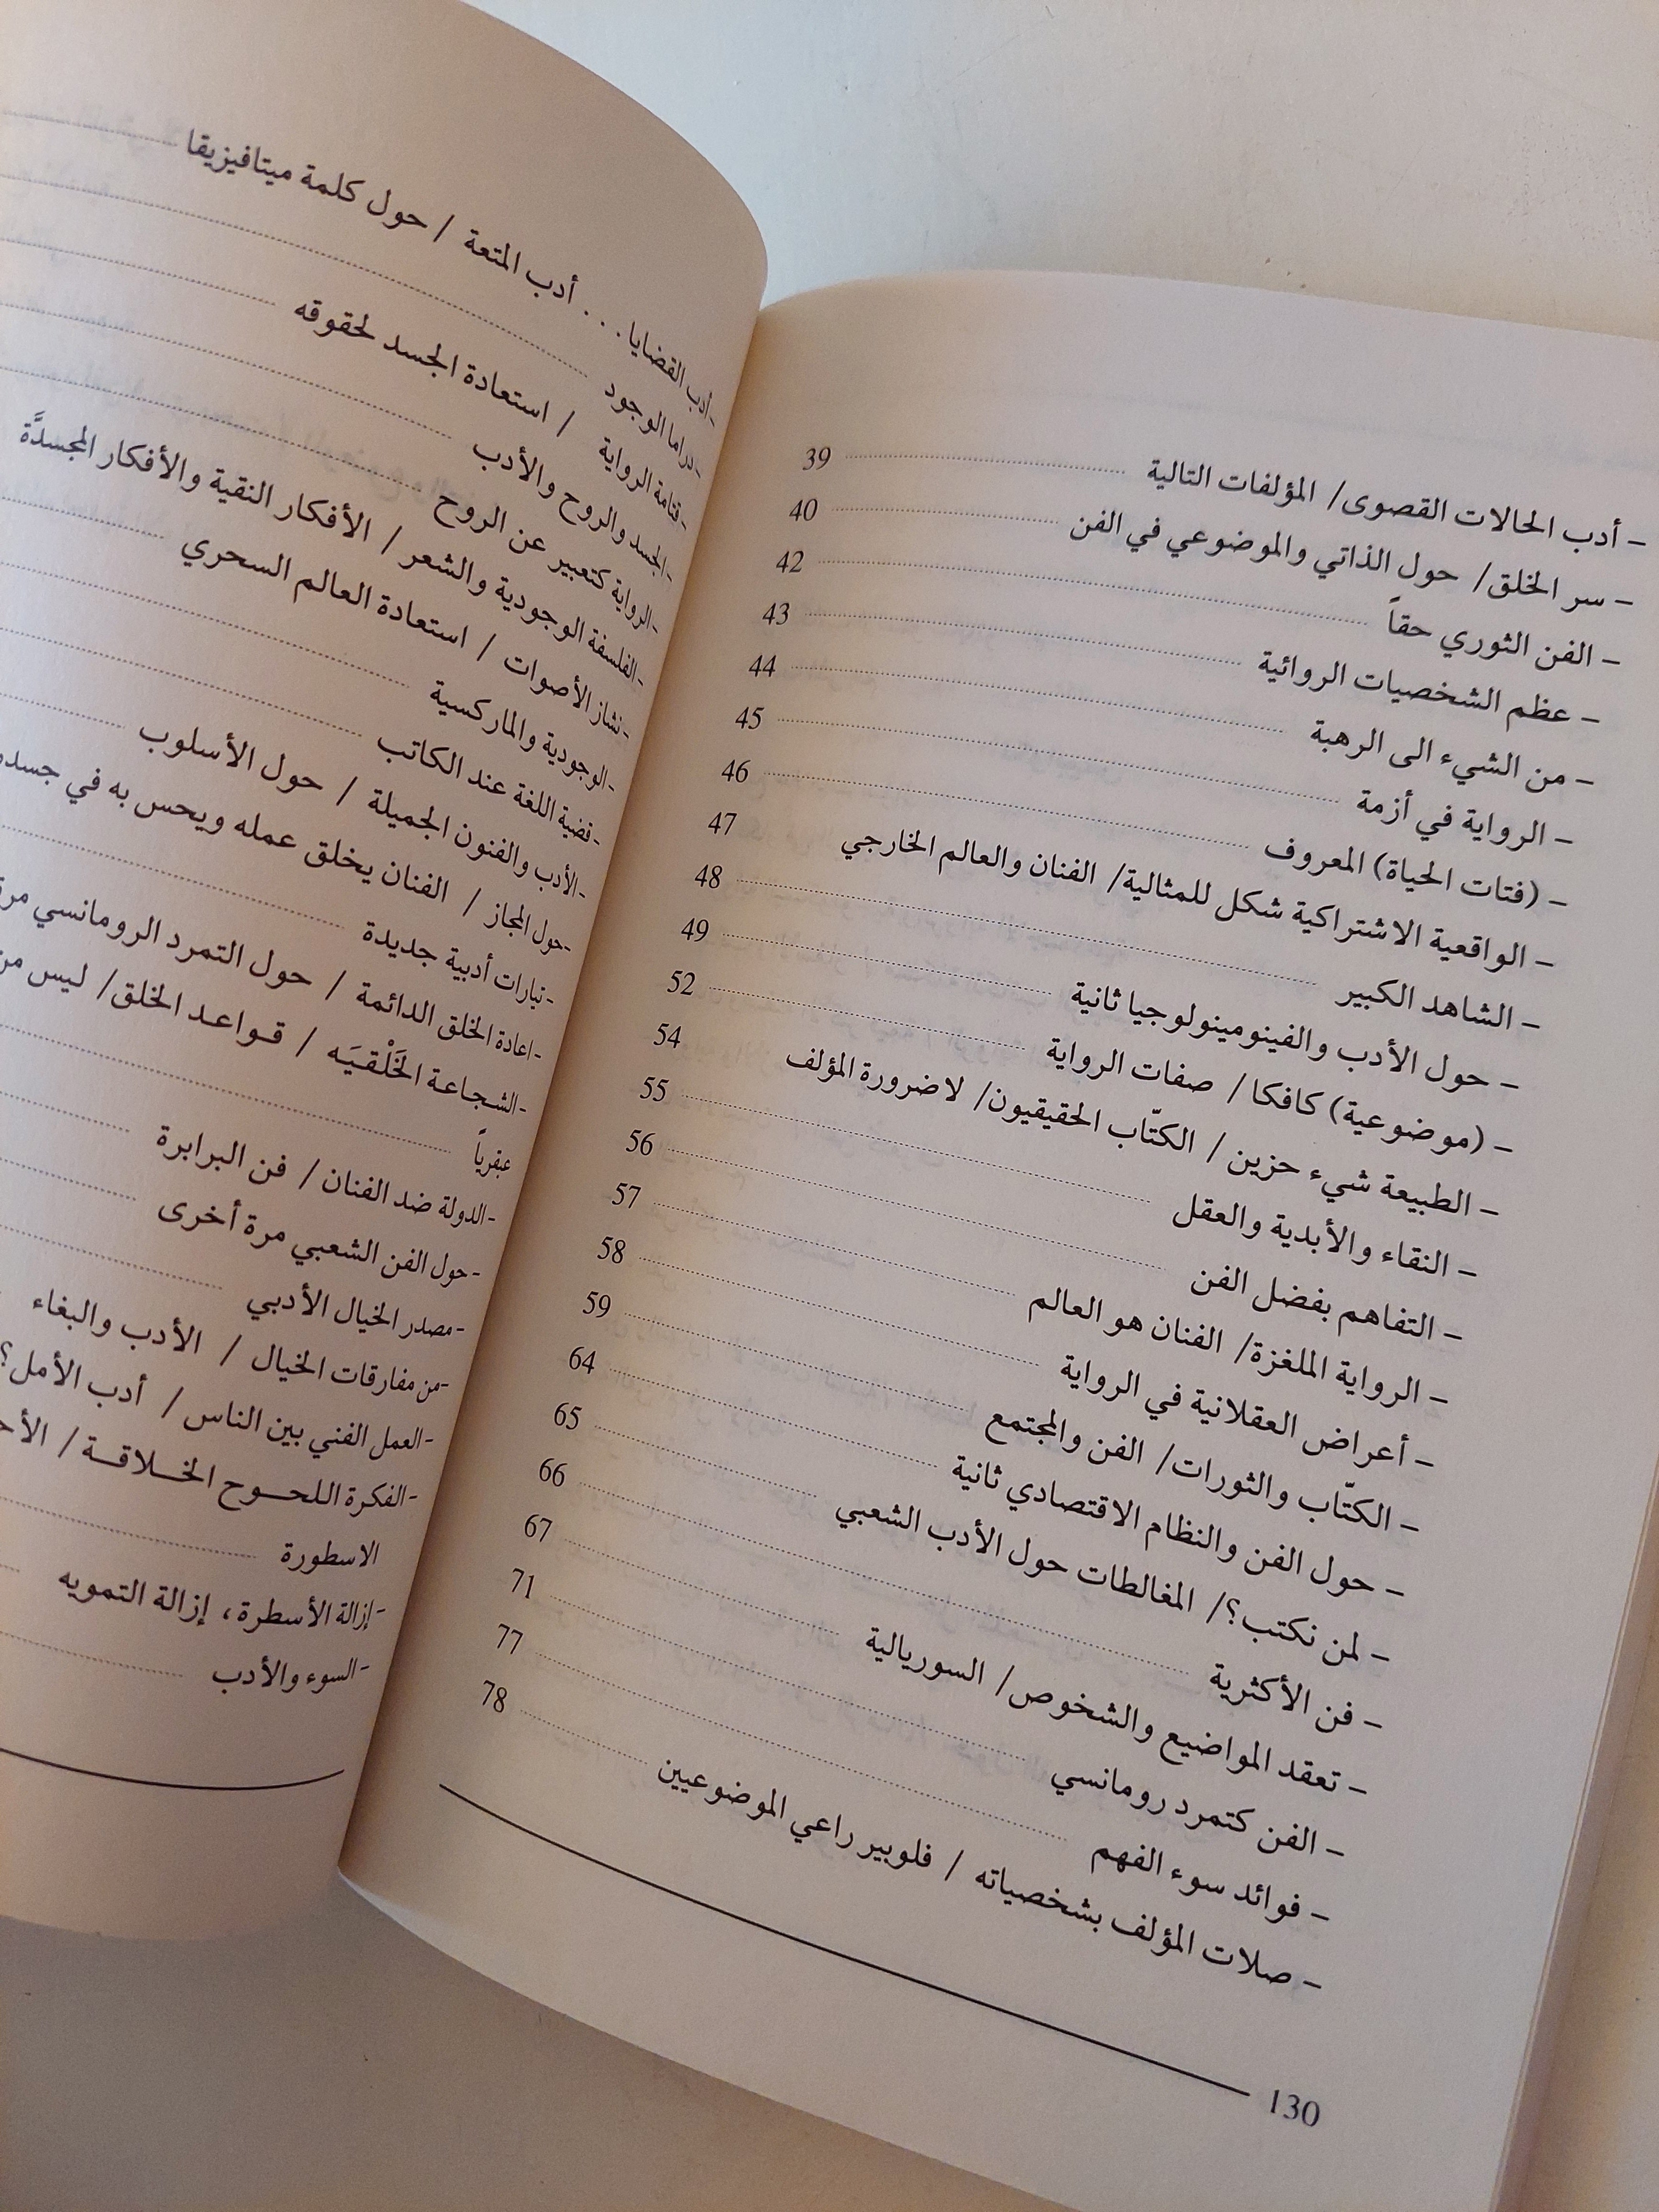 – أدب الحالات القصوى/ المؤلفات التالية ........ 39
– سر الخلق/ حول الذاتي والموضوعي في الفن ........ 40
– الفن الثوري حقاً ........ 42
– عظم الشخصيات الروائية ........ 43
– من الشيء الى الرهبة ........ 44
– الرواية في أزمة ........ 45
– (فتات الحياة) المعروف ........ 46
– الواقعية الاشتراكية شكل للمثالية/ الفنان والعالم الخارجي 47
– الشاهد الكبير ........ 48
– حول الأدب والفينومينولوجيا ثانية ........ 49
– (موضوعية) كافكا/ صفات الرواية ........ 52
– الطبيعة شيء حزين/ الكتّاب الحقيقيون/ لاضرورة المؤلف 54
– النقاء والأبدية والعقل ........ 55
– التفاهم بفضل الفن ........ 56
– الرواية الملغزة/ الفنان هو العالم ........ 57
– أعراض العقلانية في الرواية ........ 58
– الكتّاب والثورات/ الفن والمجتمع ........ 59
– حول الفن والنظام الاقتصادي ثانية ........ 64
– لمن نكتب؟/ المغالطات حول الأدب الشعبي ........ 65
– فن الأكثرية ........ 66
– تعقد المواضيع والشخوص/ السوريالية ........ 67
– الفن كتمرد رومانسي ........ 71
– فوائد سوء الفهم ........ 77
– صلات المؤلف بشخصياته / فلوبير راعي الموضوعيين ........ 78
130
-أدب القضايا. . . أدب المتعة / حول كلمة ميتافيزيقا ........
-دراما الوجود ........
-قتامة الرواية / استعادة الجسد لحقوقه ........
-الجسد والروح والأدب ........
-الرواية كتعبير عن الروح ........
-الفلسفة الوجودية والشعر/ الأفكار النقية والأفكار المجسدَّة
-نشاز الأصوات / استعادة العالم السحري ........
-الوجودية والماركسية ........
-قضية اللغة عند الكاتب ........
-الأدب والفنون الجميلة / حول الأسلوب ........
-حول المجاز / الفنان يخلق عمله ويحس به في جسده
-تيارات أدبية جديدة ........
-اعادة الخلق الدائمة / حول التمرد الرومانسي
-الشجاعة الخَلْقيَه / قواعد الخلق/ ليس
عبقرياً ........
-الدولة ضد الفنان/ فن البرابرة ........
-حول الفن الشعبي مرة أخرى ........
-مصدر الخيال الأدبي ........
-من مفارقات الخيال / الأدب والبغاء
-العمل الفني بين الناس / أدب الأمل؟
-الفكرة اللحوح الخلاقة/
الاسطورة ........
-إزالة الأسطرة، إزالة التمويه ........
-السوء والأدب ........